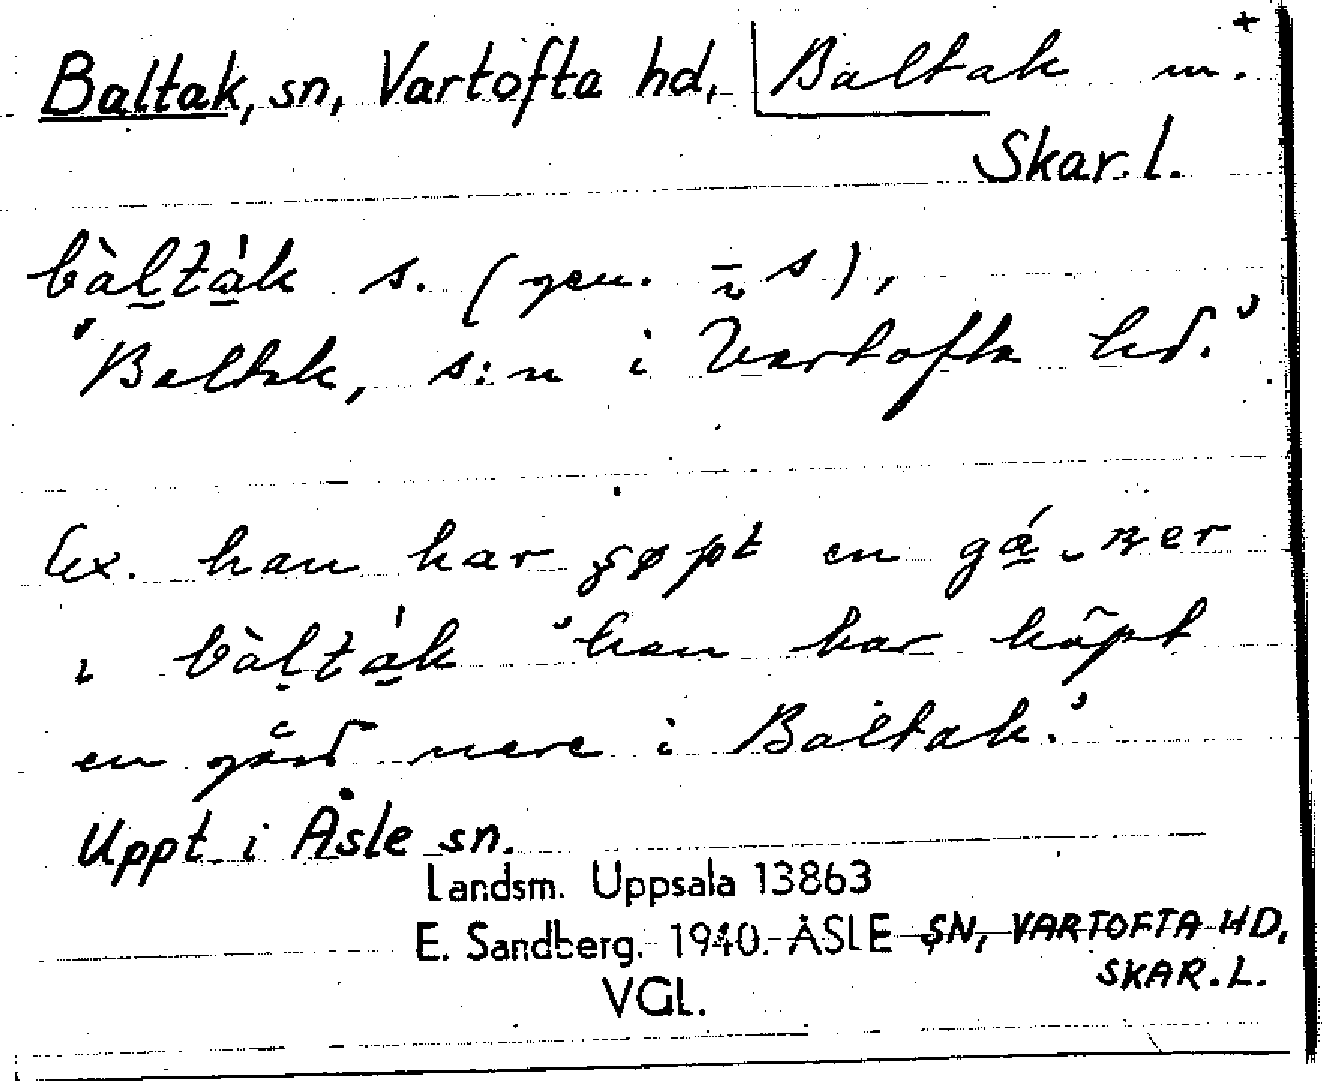 Baltak, sn, Vartofta hd, Baltak m. +
Skar. l.
bàl̠tá̠k s. (gen. s),
'Baltak, s:n i Vartofta hd.'
Ex. han har en
i bàl̠tá̠k 'han har köpt
en gård nere i Baltak.'
Uppt. i Åsle sn.
Landsm. Uppsala 13863
E. Sandberg. 1940. ÅSLE SN, VARTOFTA HD,
SKAR. L.
VGL.